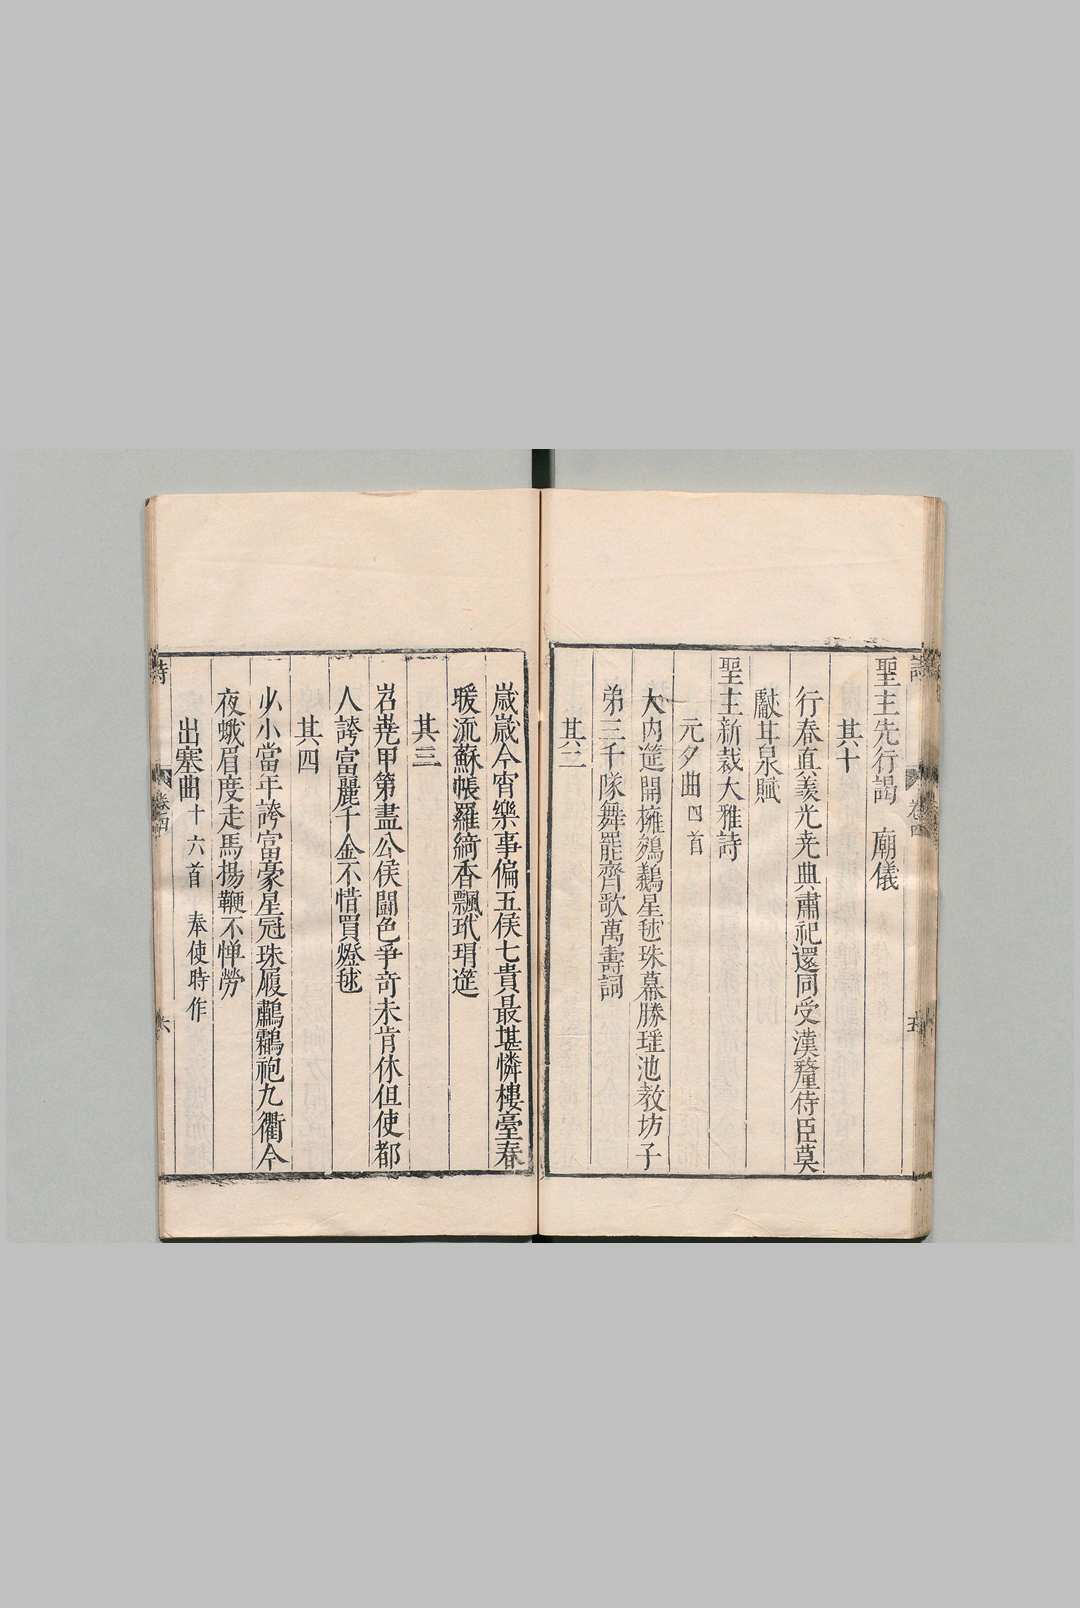 聖主先行謁　廟儀
其十
行春直羨光堯典肅祀還同受漢釐侍臣莫
獻甘泉賦
聖主新裁大雅詩
元夕曲四首
大內筵開擁鵷鵝星毬珠幕勝瑶池教坊子
弟三千隊舞罷齊歌萬壽詞
其二
歲歲今宵樂事偏五侯七貴最堪憐樓臺春
暖流蘇帳羅綺香飄玳瑁筵
其三
岧嶤甲第盡公侯鬪色爭奇未肯休但使都
人誇富麗千金不惜買燈毬
其四
少小當年誇富豪星冠珠履鷫鸘袍九衢今
夜蛾眉度走馬揚鞭不憚勞
出塞曲十六首　奉使時作
詩
卷四
五
詩
卷四
六